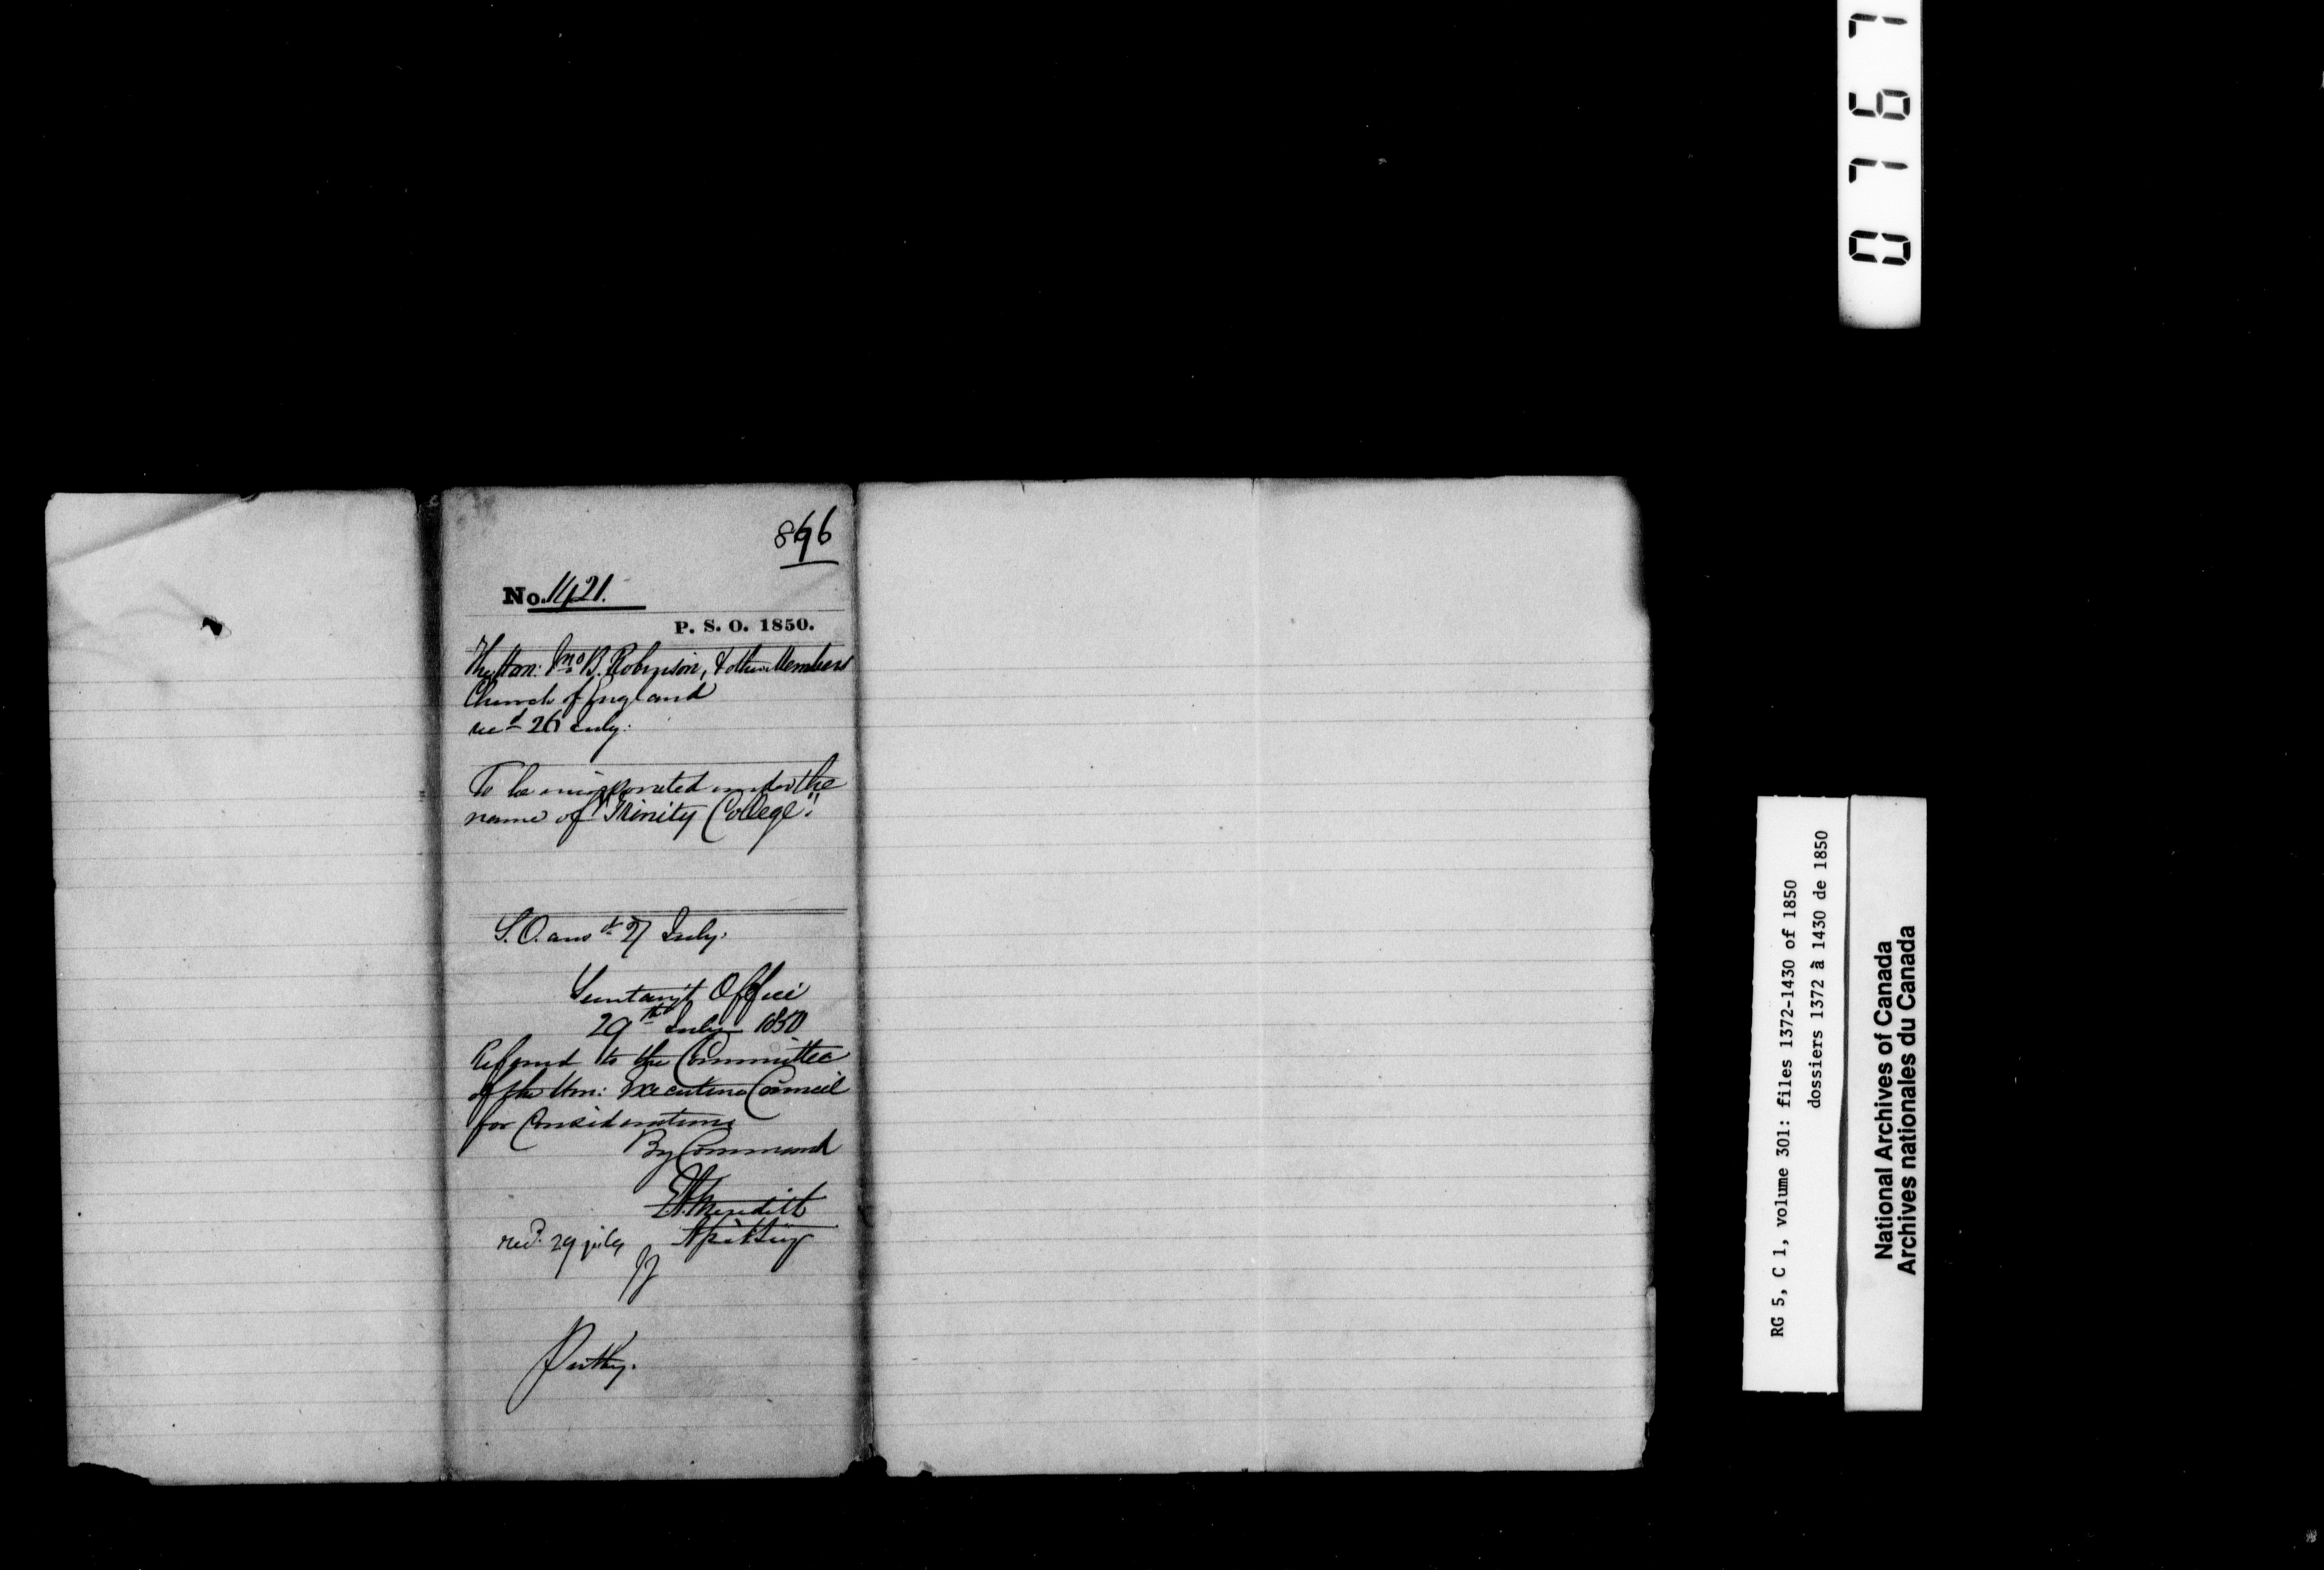 896
No. 1421.
P. S. O. 1850.
The Hon: Jno B. Robinson, & other Members
Church of England
recd 26 July:
To be incorporated under the
name of "Trinity College."
S.O. ansd 27 July.
Secretary's Office
29th July 1850
Referred to the Committee
of the Hon: Executive Council
for Consideration
By Command
E A Meredith
Recd. 29 July
Western
0767
RG 5, C 1, volume 301: files 1372-1430 of 1850
dossiers 1372 à 1430 de 1850
National Archives of Canada
Archives nationales du Canada